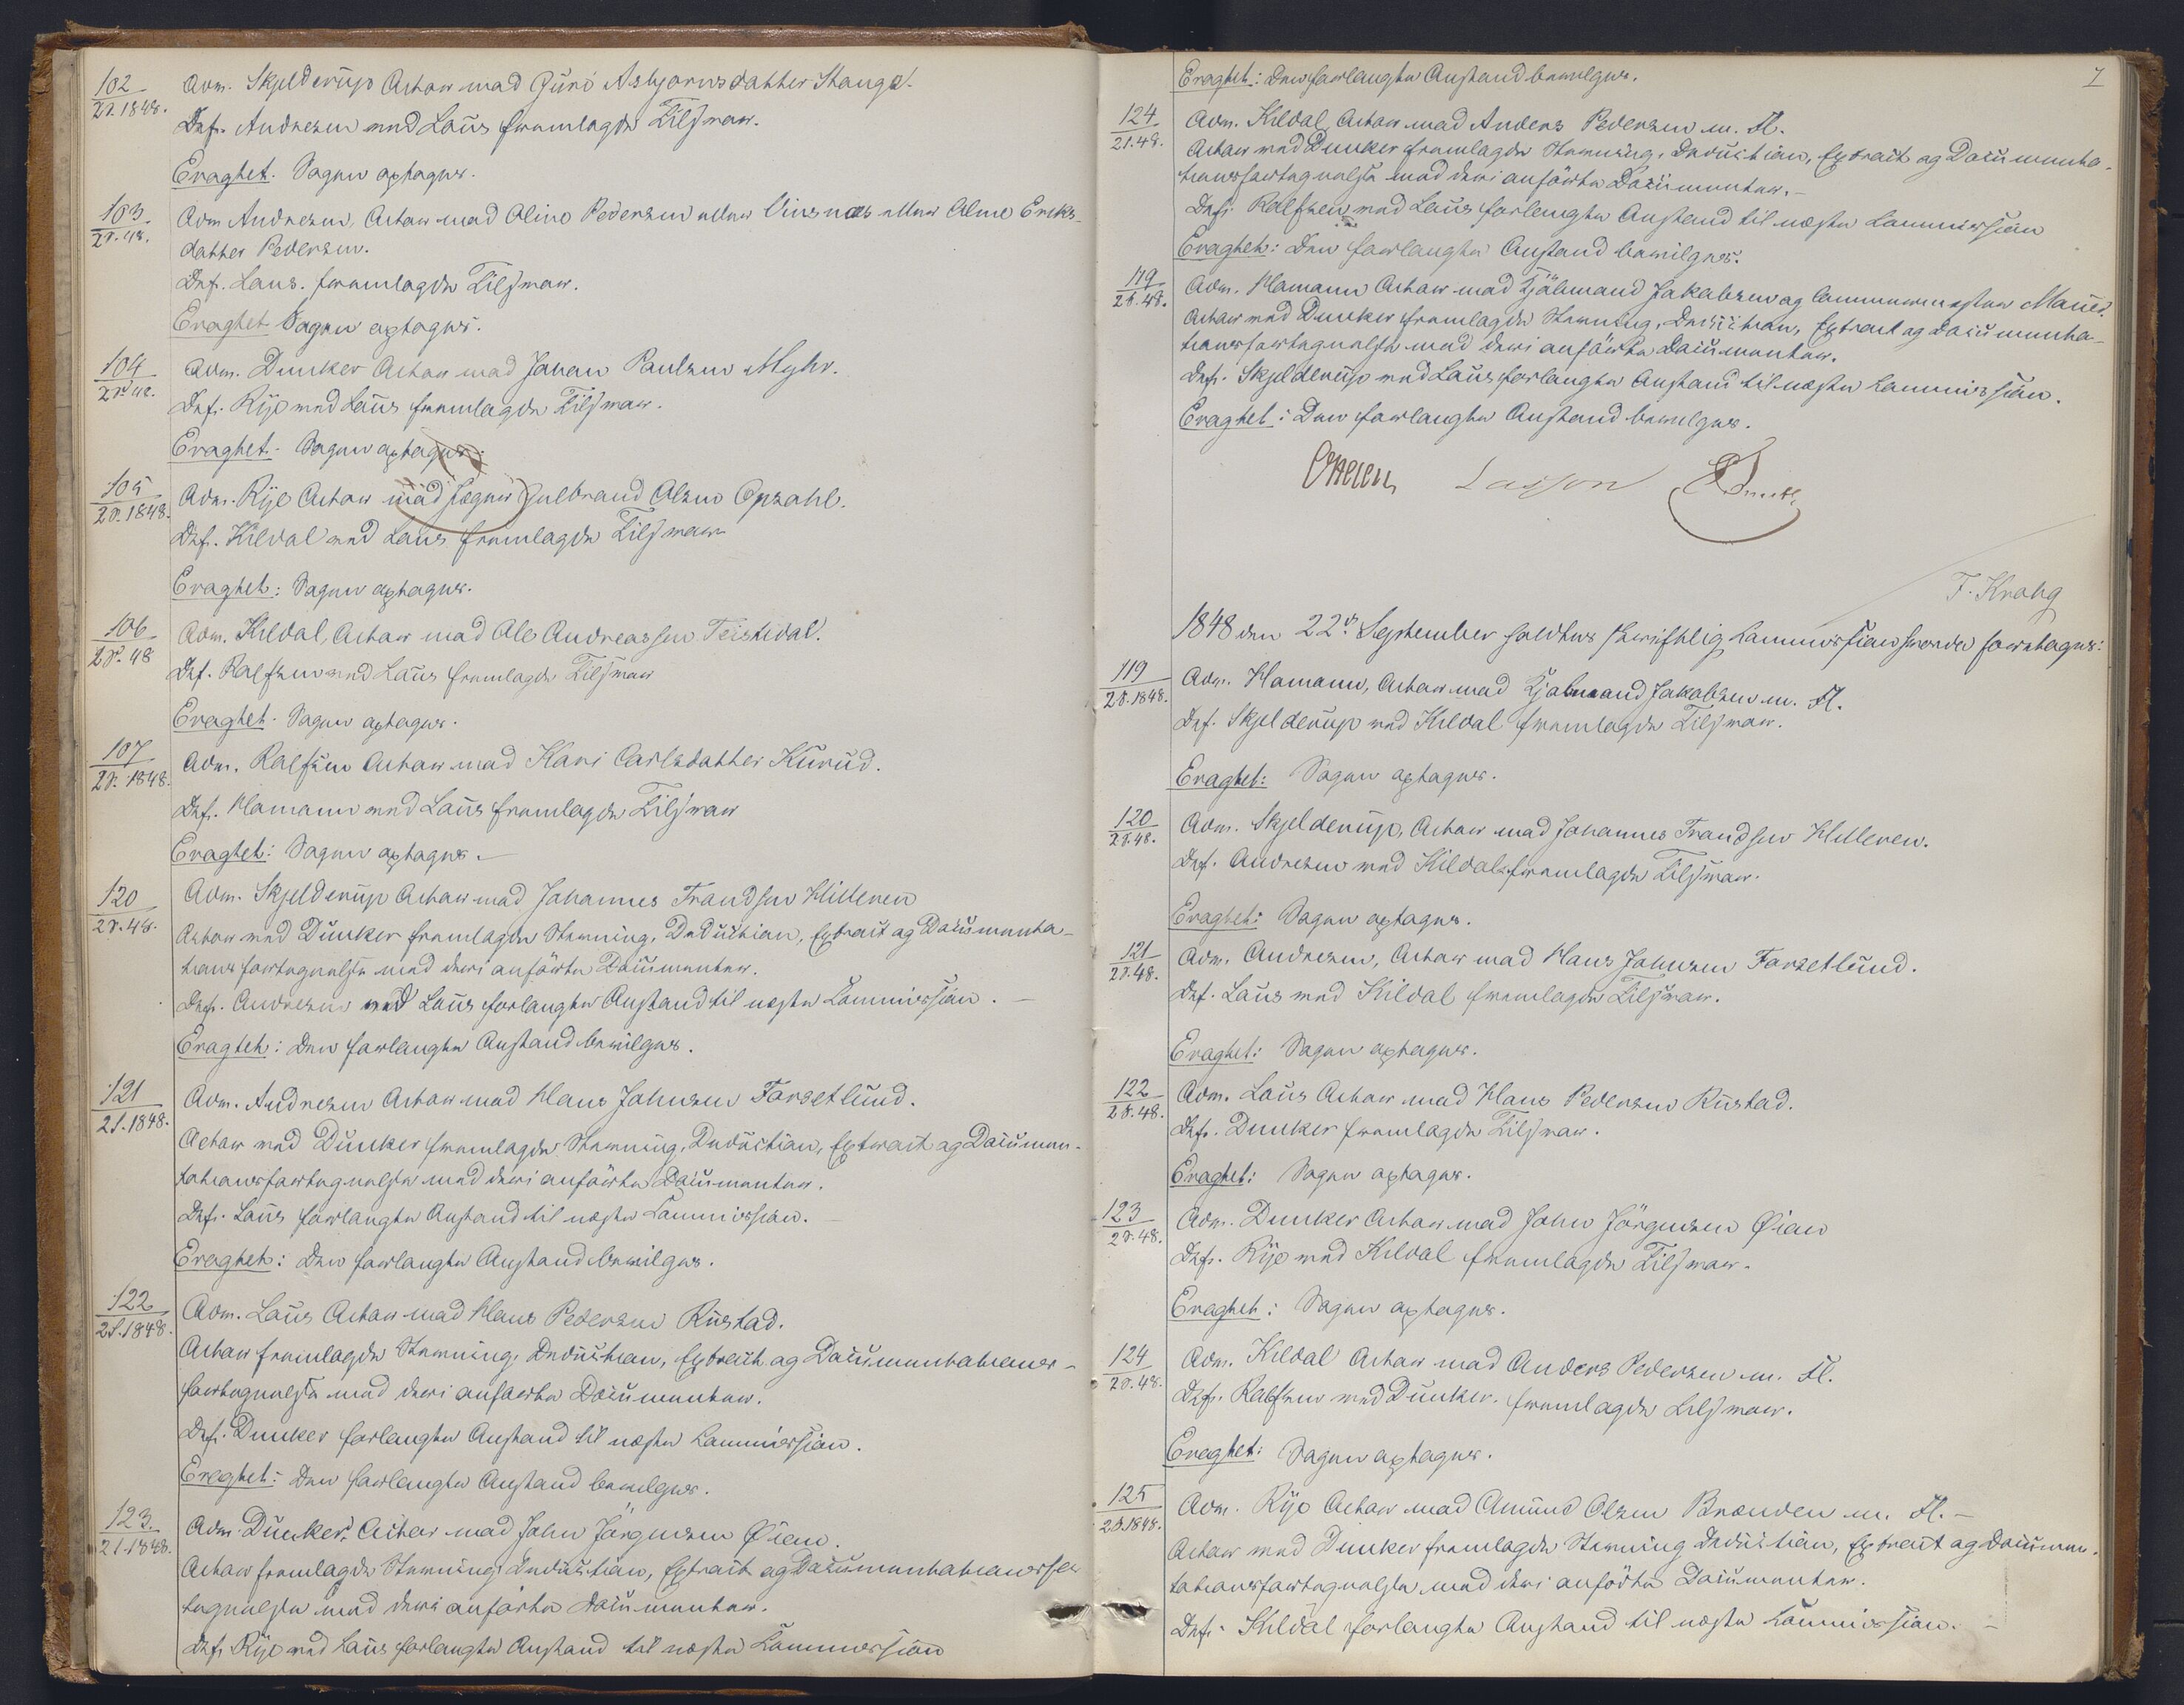 102
2S.1848.
Adv. Skjelderup Actor mod Guro Asbjørnsdatter Stange.
Def. Andresen ved Laus fremlagde Tilsvar.
Eragtet. Sagen optages.
103.
2S.48.
Adv Andresen, Actor mod Oline Pedersen eller Vinsnæs eller Oline Ericks-
datter Pedersen.
Def. Laus. fremlagde Tilsvar.
Eragtet Sagen optages.
104
2S.48.
Adv. Dunker Actor mod Johan Paulsen Myhr.
Def. Rije ved Laus fremlagde Tilsvar.
Eragtet. Sagen optages.
105
2S.1848.
Adv. Rije Actor mod Gulbrand Olsen Opsahl.
Def. Kildal ved Laus fremlagde Tilsvar
Eragtet: Sagen optages.
106
2S.48
Adv. Kildal, Actor mod Ole Andreassen Teistedal.
Def. Ralfsen ved Laus fremlagde Tilsvar
Eragtet. Sagen optages.
107
2S.1848.
Adv. Ralfsen Actor mod Kari Carlsdatter Kurud.
Def. Hamann ved Laus fremlagde Tilsvar
Eragtet: Sagen optages.
120
2S.48.
Adv. Skjelderup Actor mod Johannes Trondsen Hilleren
Actor ved Dunker fremlagde Stevning, Deduction, Extract og Documenta-
tionsfortegnelse med deri anførte Documenter.
Def. Andresen ved Laus forlangte Anstand til næste Commission.
Eragtet: Den forlangte Anstand bevilges.
121
2S.1848.
Adv. Andresen Actor mod Hans Johnsen Forsetlund.
Actor ved Dunker fremlagde Stevning, Deduction, Extract og Documen-
tationsfortegnelse med deri anførte Documenter.
Def. Laus forlangte Anstand til næste Commission.
Eragtet: Den forlangte Anstand bevilges.
122
2S.1848.
Adv. Laus Actor mod Hans Pedersen Rustad.
Actor fremlagde Stevning, Deduction, Extract og Documentations-
fortegnelse med deri anførte Documenter.
Def. Dunker forlangte Anstand til næste Commission.
Eragtet: Den forlangte Anstand bevilges.
123.
2S.1848.
Adv. Dunker, Actor mod John Jørgensen Øien.
Actor fremlagde Stevning, Deduction, Extract og Documentationsfor
tegnelse med deri anførte Documenter.
Def. Rije ved Laus forlangte Anstand til næste Commission
7
Eragtet: Den forlangte Anstand bevilges.
124
2S.48.
Adv. Kildal, Actor mod Anders Pedersen m. Fl.
Actor ved Dunker fremlagde Stevning, Deduction, Extract og Documenta-
tionsfortegnelse med deri anførte Documenter.
Def. Ralfsen ved Laus forlangte Anstand til næste Commission
Eragtet: Den forlangte Anstand bevilges.
119
2S.48.
Adv. Hamann Actor mod Jakobsen og Maur.
Actor ved Dunker fremlagde Stevning, Deduction, Extract og Documenta-
tionsfortegnelse med deri anførte Documenter.
Def. Skjelderup ved Laus forlangte Anstand til næste Commission.
Eragtet: Den forlangte Anstand bevilges.
Lasson
F. Krohg
1848 den 22de September holdtes skriftlig Commission hvorda foretoges:
119
2S.1848.
Adv. Hamann, Actor mod Jakobsen m. Fl.
Def. Skjelderup ved Kildal fremlagde Tilsvar.
Eragtet: Sagen optages.
120
2S.48.
Adv. Skjelderup, Actor mod Johannes Trondsen Hilleren.
Def. Andresen ved Kildal fremlagde Tilsvar.
Eragtet: Sagen optages.
121
2S.48.
Adv. Andresen, Actor mod Hans Johnsen Forsetlund.
Def. Laus ved Kildal fremlagde Tilsvar.
Eragtet: Sagen optages.
122
2S.48.
Adv. Laus Actor mod Hans Pedersen Rustad.
Def. Dunker fremlagde Tilsvar.
Eragtet: Sagen optages.
123
2S.48.
Adv. Dunker Actor mod John Jörgensen Øien
Def. Rije ved Kildal fremlagde Tilsvar.
Eragtet: Sagen optages.
124
2S.48.
Adv. Kildal Actor mod Anders Pedersen m. Fl.
Def. Ralfsen ved Dunker. fremlagde Tilsvar.
Eragtet: Sagen optages.
125
2S.1848.
Adv. Rije Actor mod Amund Olsen Brænden m. Fl.
Actor ved Dunker fremlagde Stevning Deduction, Extract og Documen-
tationsfortegnelse med deri anførte Documenter.
Def. Kildal forlangte Anstand til næste Commission.